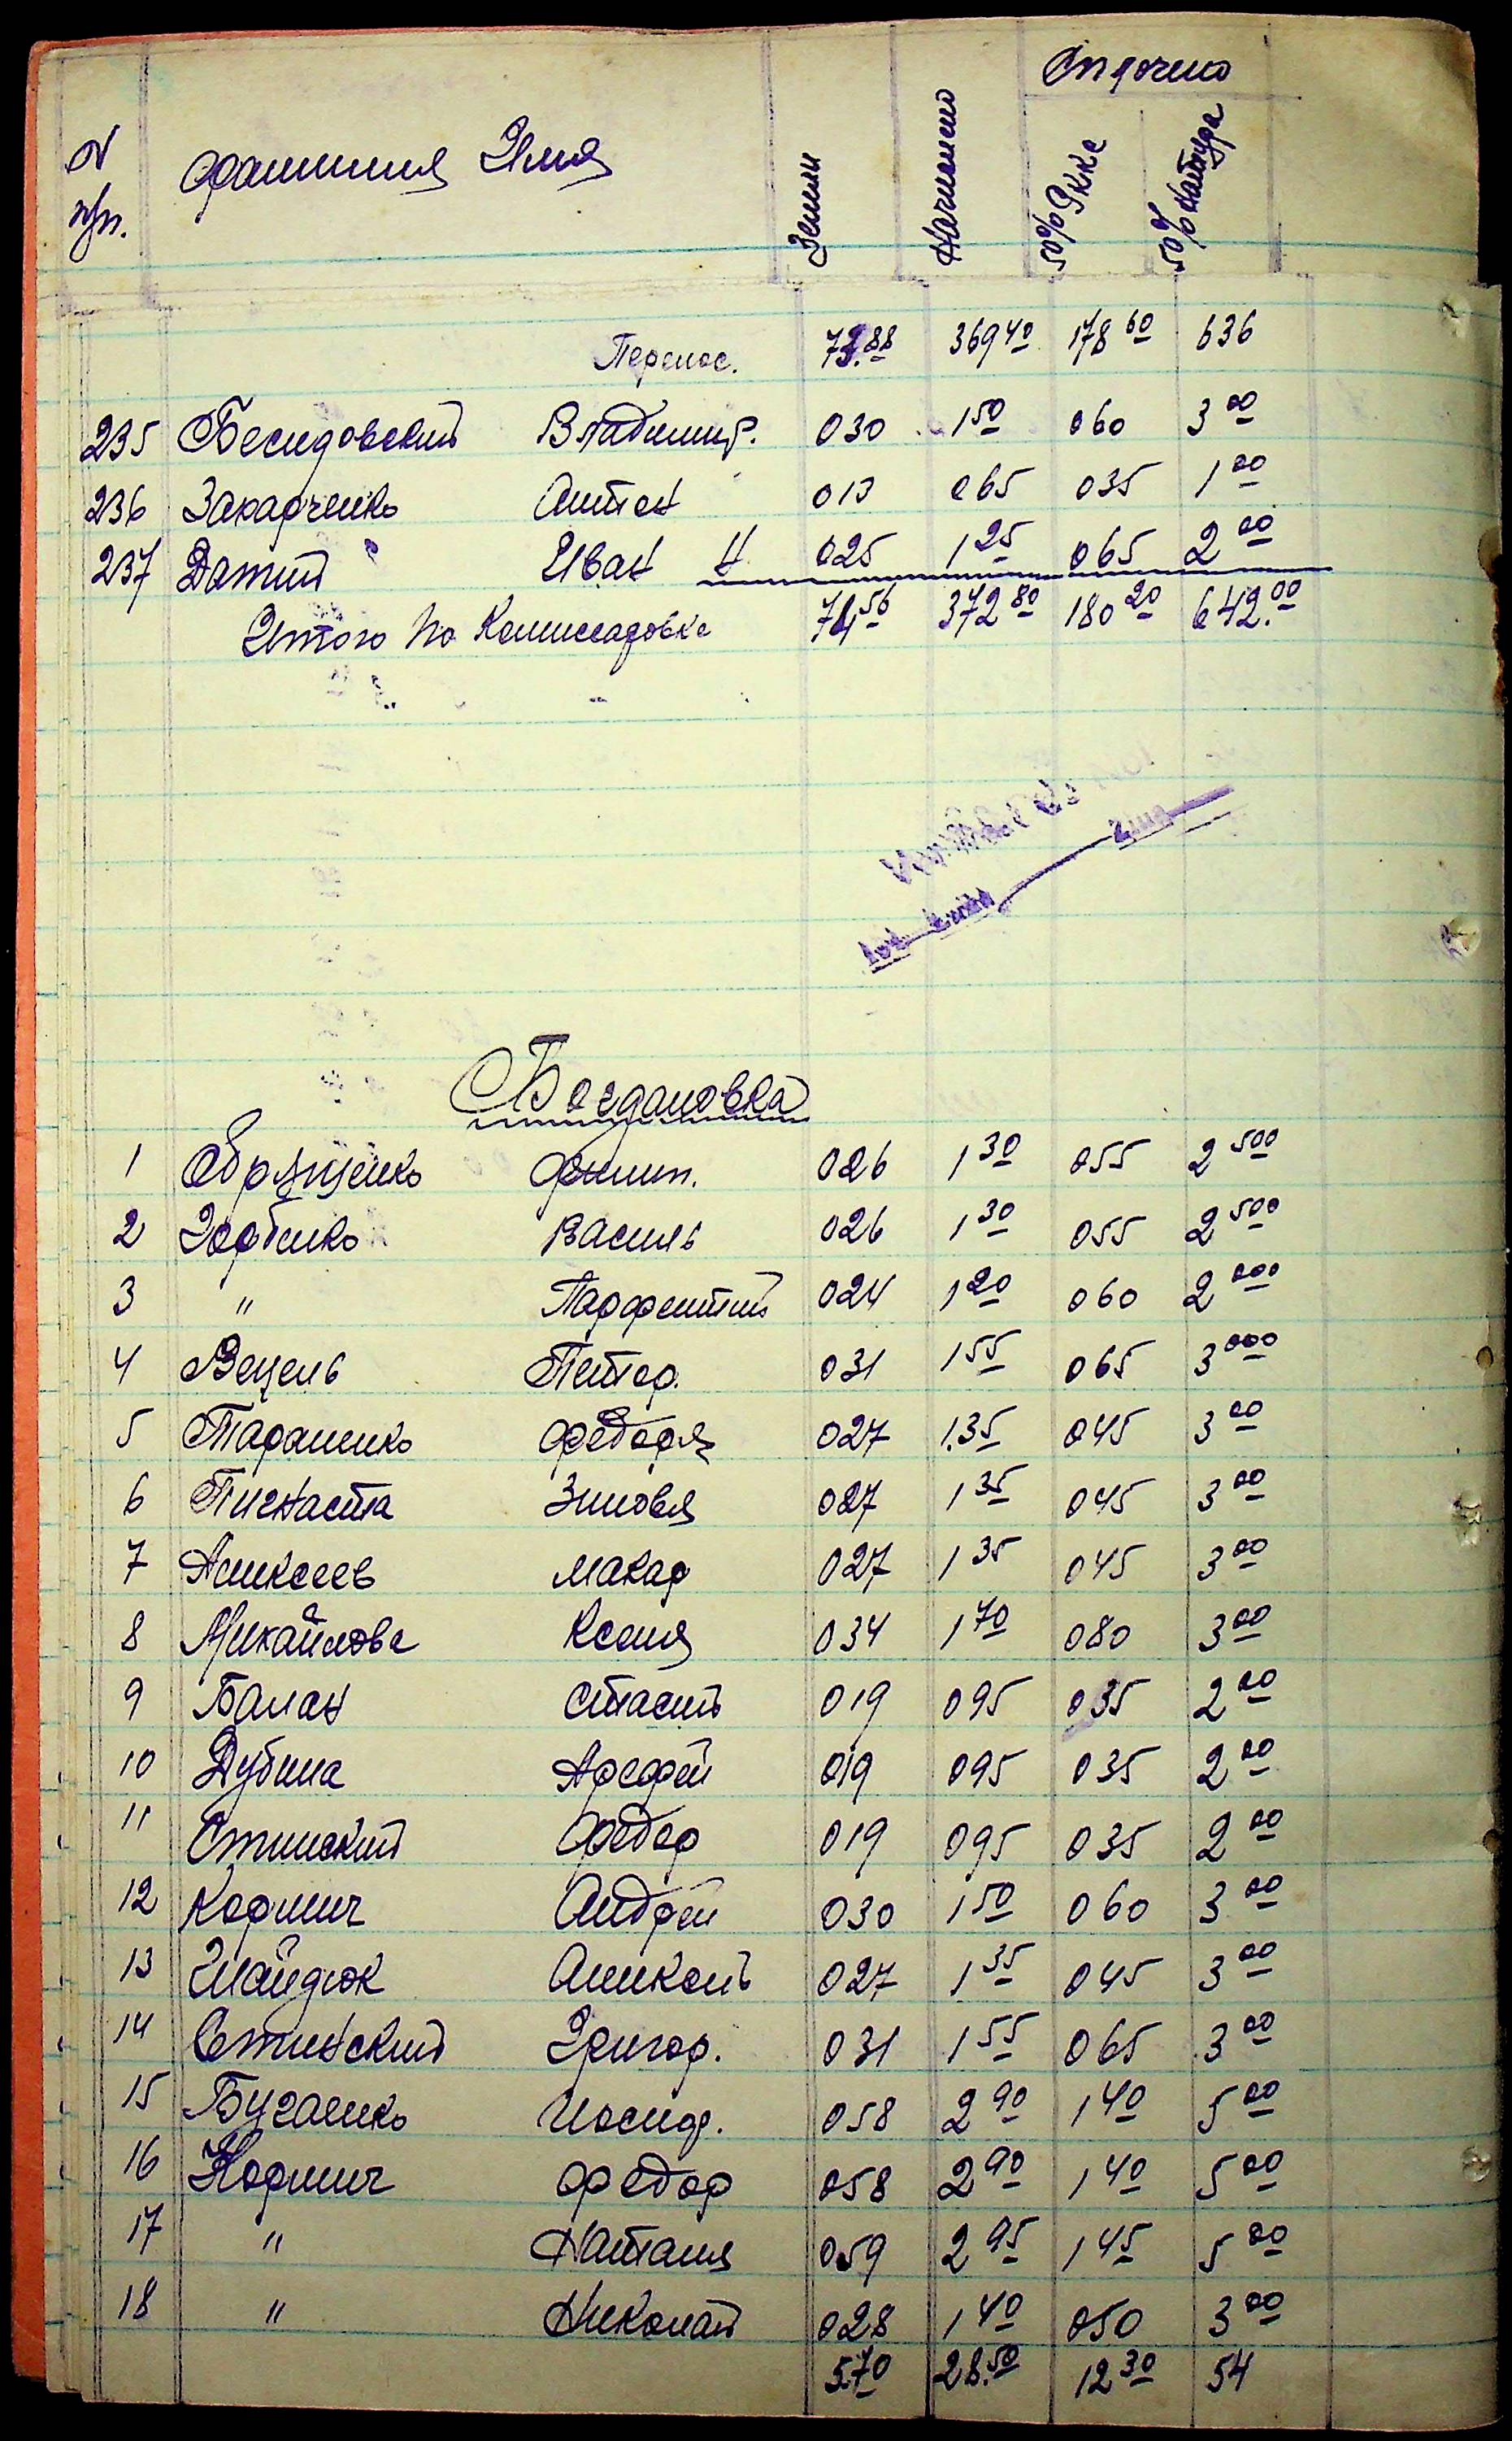 Оплочено
N п/п. Фамилия Имя Земли Начислено 50% Ркка 50% Натура
Перенос. 73.88 369 40 178 60 636
235 Бесидовский Владимир. 030 1 50 060 3 00
236 Захарченко Антон 013 065 035 1 00
237 Датий Иван 025 1 25 065 2 00
Итого по Комиссаровке 74 56 372 80 180 20 642.00
Богдановка
1 Обрященко Филип. 026 1 30 055 2 500
2 Горбенко Василь 026 1 30 055 2 500
3 " Парфентий 024 1 20 060 2 000
4 Вецель Петер. 031 1 55 065 3 000
5 Тараненко Федоря 027 1.35 045 3 00
6 Пигнаста Зиновя 027 1 35 045 3 00
7 Алексеев Макар 027 1 35 045 3 00
8 Михайлова Ксеня 034 1 70 080 3 00
9 Балан Стасий 019 095 035 2 00
10 Дубина Арефей 019 095 035 2 00
11 Стинский Федор 019 095 035 2 00
12 Кормич Андрей 030 1 50 060 3 00
13 Гайдюк Алексей 027 1 35 045 3 00
14 Стинский Григор. 031 1 55 065 3 00
15 Бугаенко Иосиф. 058 2 90 1 40 5 00
16 Кормич Федор 058 2 90 1 40 5 00
17 " Наталя 059 2 95 1 45 5 00
18 " Николай 028 1 40 050 3 00
5.70 28.50 12 30 54